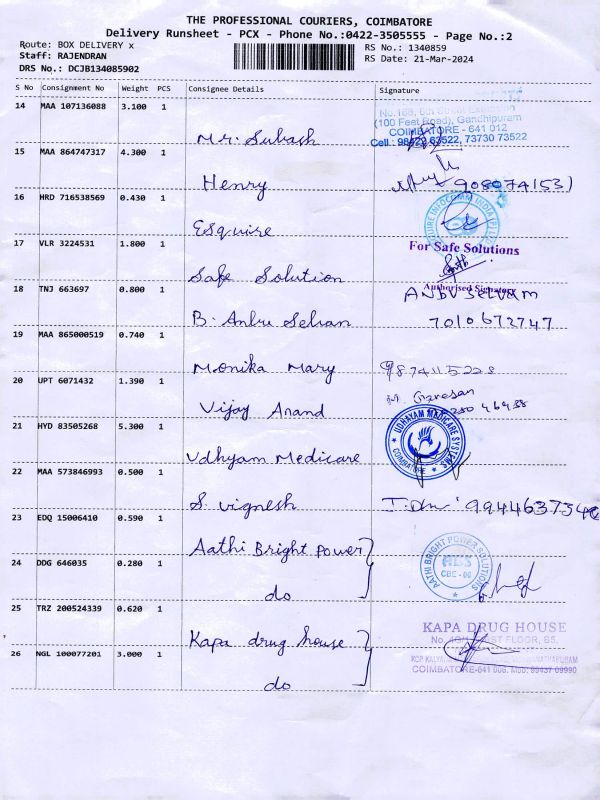 THE PROFESSIONAL COURIERS, COIMBATORE
Delivery Runsheet - PCX - Phone No.:0422-3505555 - Page No.:2
Route: BOX DELIVERY x
RS No.: 1340859
Staff: RAJENDRAN
RS Date: 21-Mar-2024
DRS No.: DCJB134085902
S No Consignment No Weight PCS Consignee Details Signature
14 MAA 107136088 3.100 1 Mr. Subash
(100 Feet Road), Gandhipuram
COIMBATORE - 641 012
73730 73522
15 MAA 864747317 4.300 1 Henry
16 HRD 716538569 0.430 1 Esquire
17 VLR 3224531 1.800 1 Safe Solution
For Safe Solutions
Authorised Signatory
18 TNJ 663697 0.800 1 B. Anbu Selvan
7010672747
19 MAA 865000519 0.740 1 Monika Mary
20 UPT 6071432 1.390 1 Vijay Anand
21 HYD 83505268 5.300 1 Udhyam Medicare
UDHAYAM MEDICARE SYSTEMS
COIMBATORE
22 MAA 573846993 0.500 1 S. Vignesh
23 EDQ 15006410 0.590 1 Aathi Bright Power
AATHI BRIGHT POWER SOLUTIONS
24 DDG 646035 0.280 1 do
25 TRZ 200524339 0.620 1 Kapa drug house
KAPA DRUG HOUSE
26 NGL 100077201 3.000 1 do